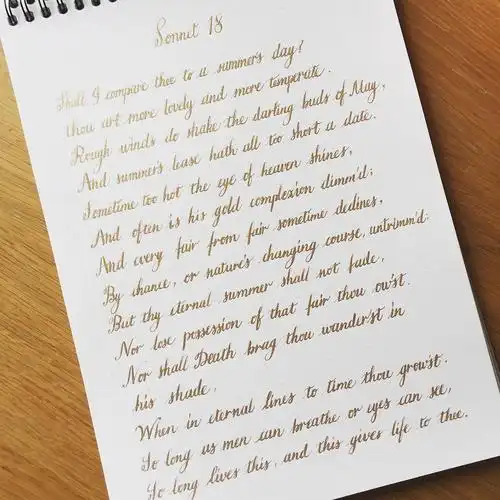 Sonnet 18
Shall I compare thee to a summer's day?
thou art more lovely and more temperate.
Rough winds do shake the darling buds of May,
And summer's lease hath all too short a date.
Sometime too hot the eye of heaven shines,
And often is his gold complexion dimm'd;
And every fair from fair sometime declines,
By chance, or nature's changing course, untrimm'd:
But thy eternal summer shall not fade,
Nor lose possession of that fair thou ow'st.
Nor shall Death brag thou wander'st in
his shade,
When in eternal lines to time thou grow'st.
So long as men can breathe or eyes can see,
So long lives this, and this gives life to thee.